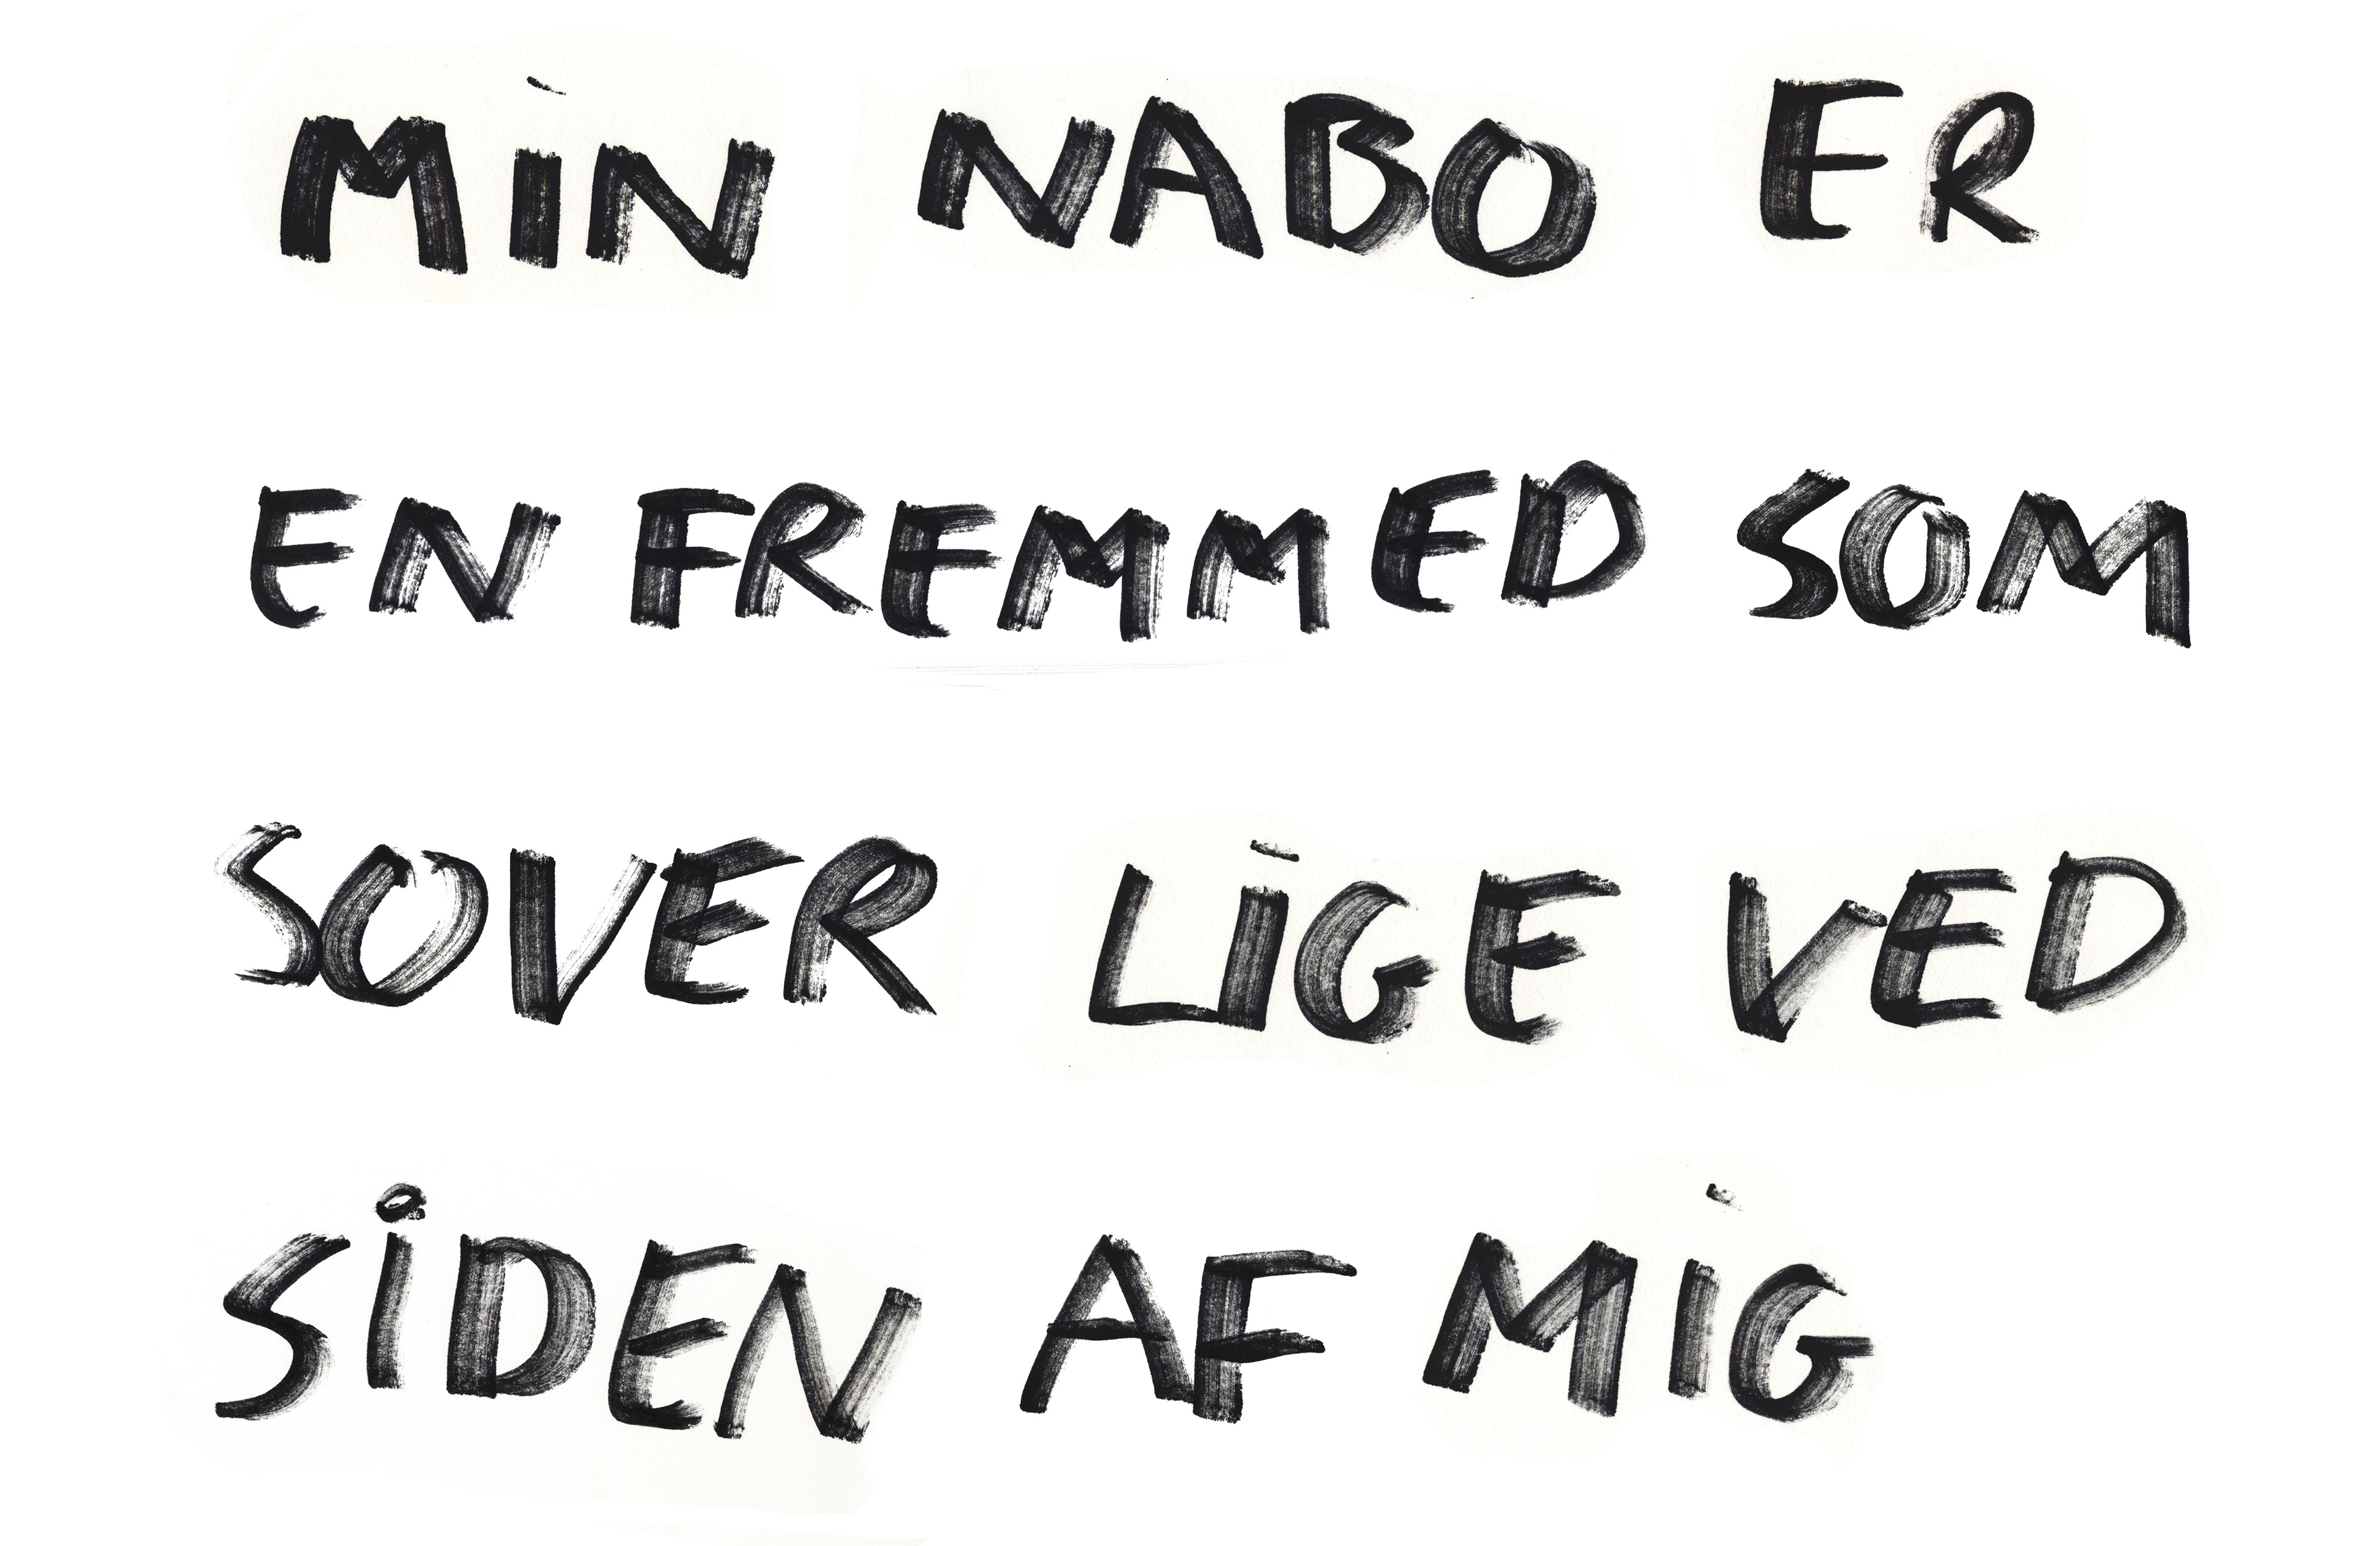 MiN NABO ER
EN FREMMED SOM
SOVER LiGE VED
SiDEN AF MiG